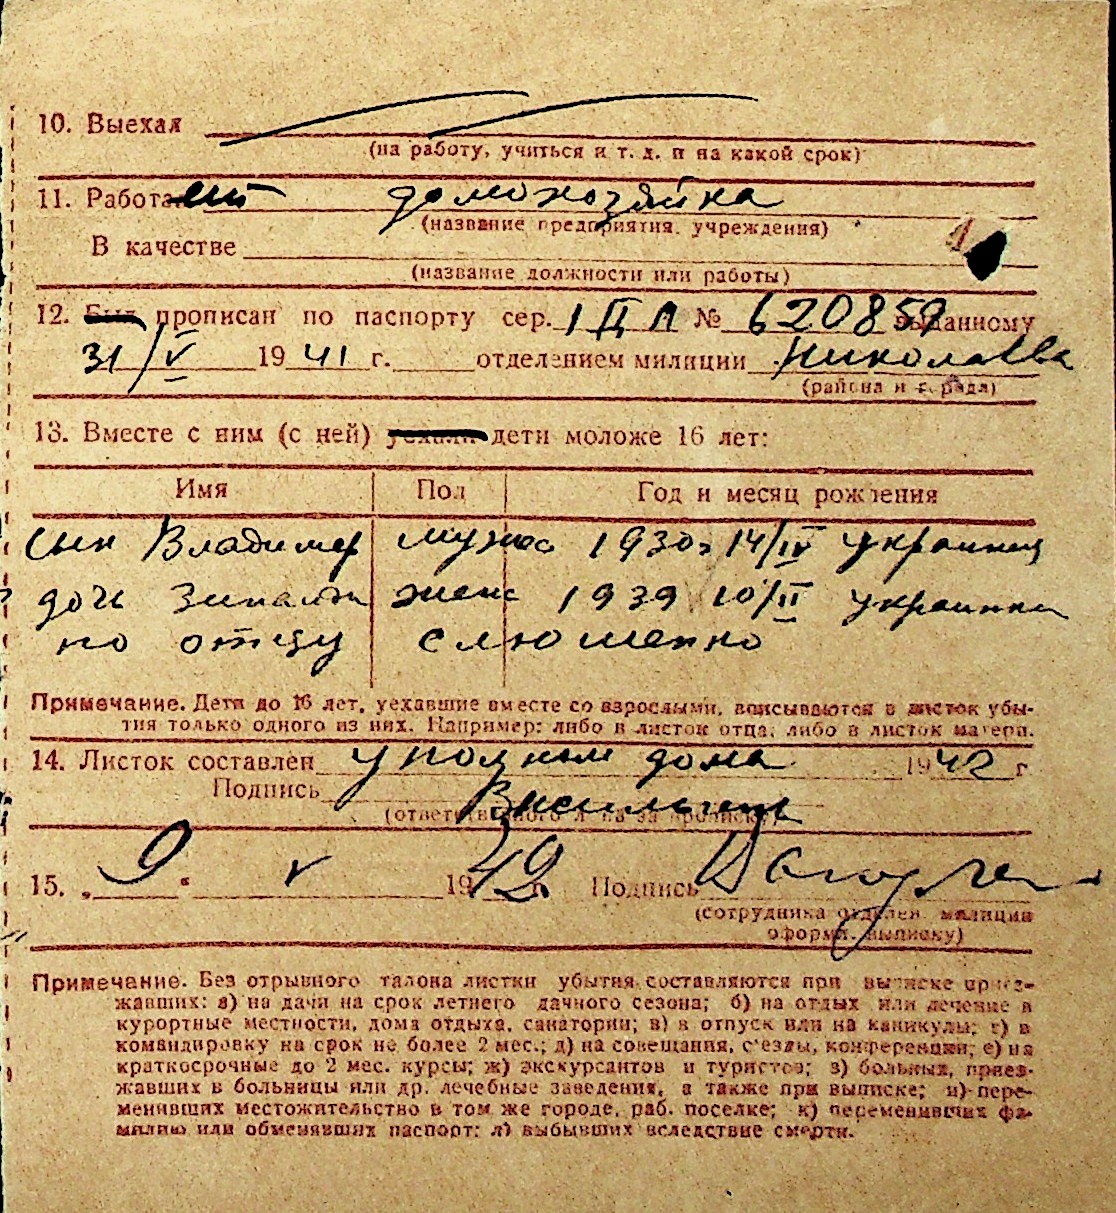 10. Выехал
(на работу, учиться и т. д. и на какой срок)
11. Работает домохозяйка
(название предприятия, учреждения)
В качестве
(название должности или работы)
12. Был прописан по паспорту сер. I ЦА № 620859 выданному
31/V 1941 г. отделением милиции Николаева
(района и города)
13. Вместе с ним (с ней) уехали дети моложе 16 лет:
Имя Пол Год и месяц рождения
сын Владимир мужс 1930 г 14/IV украинец
дочь Зинаида женс 1939 10/II украинка
по отцу
Примечание. Дети до 16 лет, уехавшие вместе со взрослыми, вписываются в листок убы-
тия только одного из них. Например: либо в листок отца, либо в листок матери.
14. Листок составлен дома 1942 г
Подпись
(ответственного лица за прописку)
15. „9“ V 1942 г. Подпись
(сотрудника отделен. милиции
оформ. выписку)
Примечание. Без отрывного талона листки убытия составляются при выписке приез-
жавших: а) на дачи на срок летнего дачного сезона; б) на отдых или лечение в
курортные местности, дома отдыха, санатории; в) в отпуск или на каникулы; г) в
командировку на срок не более 2 мес.; д) на совещания, с'езды, конференции; е) на
краткосрочные до 2 мес. курсы; ж) экскурсантов и туристов; з) больных, приез-
жавших в больницы или др. лечебные заведения, а также при выписке; и) пере-
менивших местожительство в том же городе, раб. поселке; к) переменивших фа-
милию или обменявших паспорт; л) выбывших вследствие смерти.